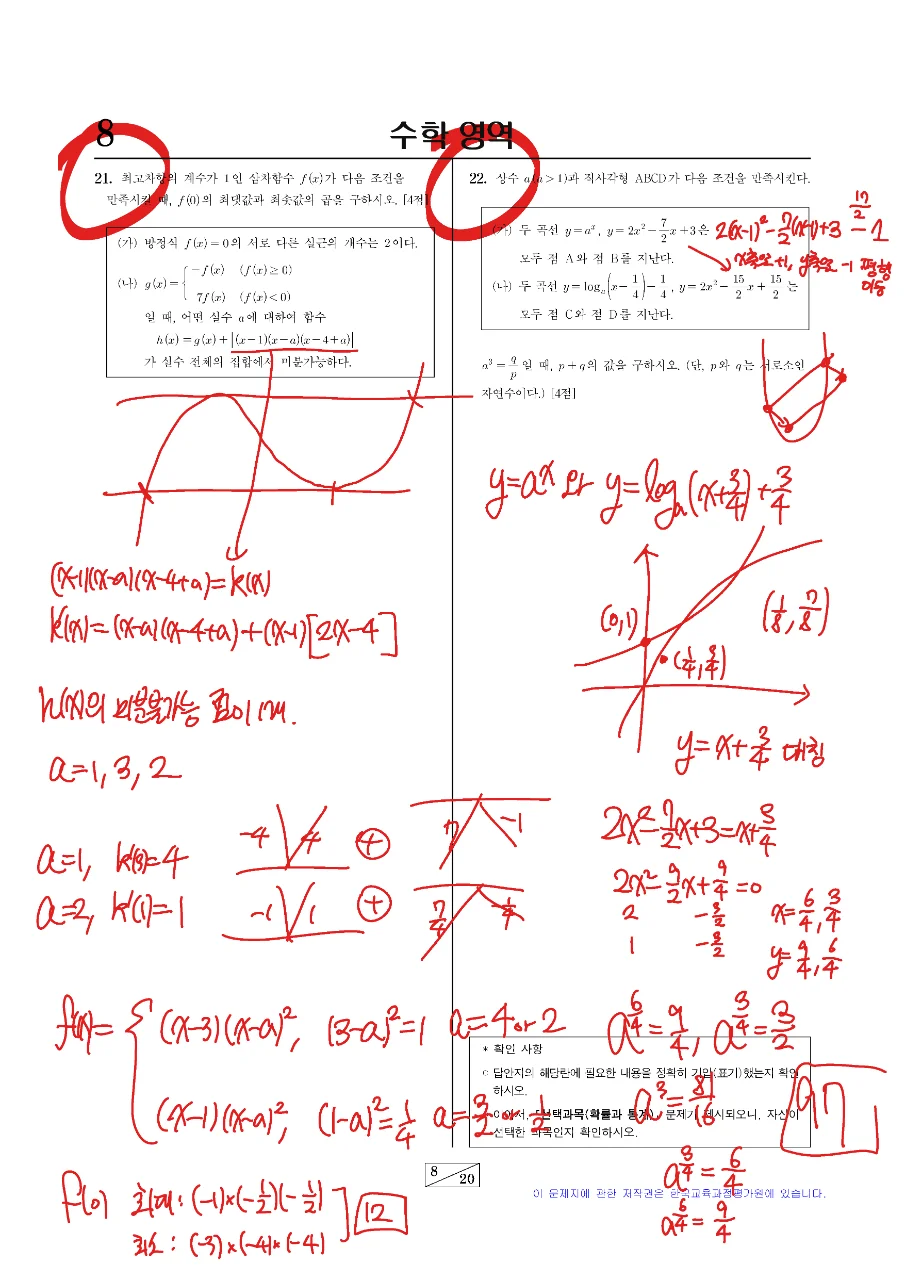 8
수학 영역
21. 최고차항의 계수가 1인 삼차함수 f(x)가 다음 조건을
만족시킬 때, f(0)의 최댓값과 최솟값의 곱을 구하시오. [4점]
(가) 방정식 f(x)=0의 서로 다른 실근의 개수는 2이다.
(나) g(x)={ -f(x) (f(x)≥0)
7f(x) (f(x)<0)
일 때, 어떤 실수 a에 대하여 함수
h(x)=g(x)+|(x-1)(x-a)(x-4+a)|
가 실수 전체의 집합에서 미분가능하다.
(x-1)(x-a)(x-4+a)=k(x)
k'(x)=(x-a)(x-4+a)+(x-1)[2x-4]
h(x)의 미분불가능 점이 1개.
a=1, 3, 2
a=1, k'(3)=4
-4 4 ⊕ 7 -1
a=2, k'(1)=1
-1 1 ⊕ 7/4 -1/4
f(x)= { (x-3)(x-a)², (3-a)²=1 a=4 or 2
(x-1)(x-a)², (1-a)²=1/4 a=3/2 or 1/2
f(0) 최대: (-1)×(-1/2)(-1/2)
최소: (-3)×(-4)×(-4)
12
22. 상수 a(a>1)과 직사각형 ABCD가 다음 조건을 만족시킨다.
(가) 두 곡선 y=aˣ, y=2x²-7/2x+3은
모두 점 A와 점 B를 지난다.
(나) 두 곡선 y=logₐ(x-1/4)-1/4, y=2x²-15/2x+15/2는
모두 점 C와 점 D를 지난다.
a³=q/p일 때, p+q의 값을 구하시오. (단, p와 q는 서로소인
자연수이다.) [4점]
2(x-1)²-7/2(x-1)+3-1
17/2
x축으로 +1, y축으로 -1 평행
이동
y=aˣ와 y=logₐ(x+3/4)+3/4
(0,1)
(1/4, 3/4)
(1/8, 7/8)
y=x+3/4 대칭
2x²-7/2x+3=x+3/4
2x²-9/2x+9/4=0
2 -3/2
1 -3/2
x=6/4, 3/4
y=9/4, 6/4
a^(6/4)=9/4, a^(3/4)=3/2
a³=81/16
97
a^(3/4)=6/4
a^(6/4)=9/4
* 확인 사항
○ 답안지의 해당란에 필요한 내용을 정확히 기입(표기)했는지 확인
하시오.
「선택과목(확률과 통계)」 문제가 제시되오니, 자신이
선택한 과목인지 확인하시오.
8
20
이 문제지에 관한 저작권은 한국교육과정평가원에 있습니다.